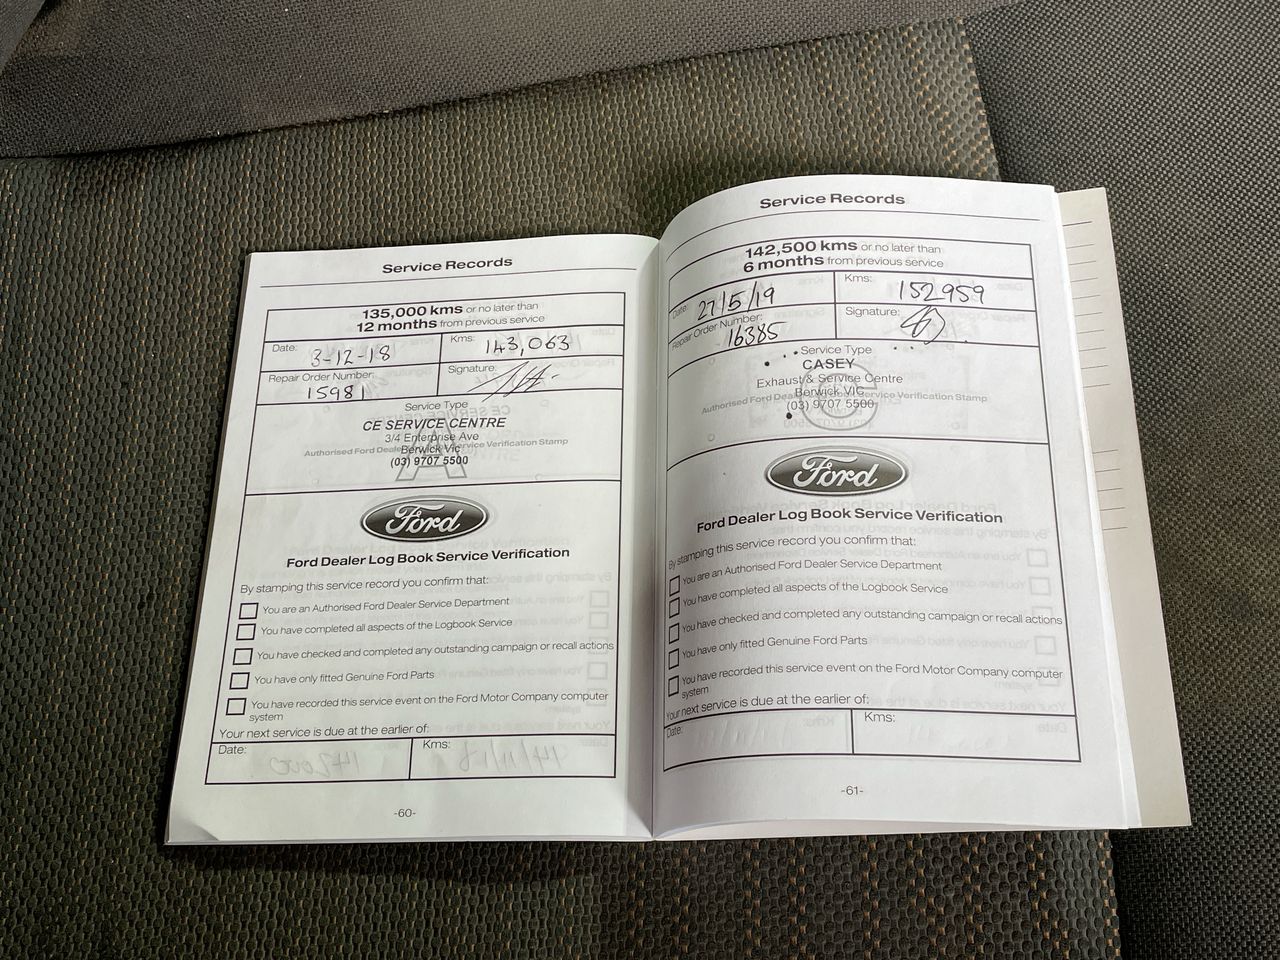 Service Records
135,000 kms or no later than
12 months from previous service
Date: 3-12-18
Kms: 143,063
Repair Order Number: 15981
Signature:
Service Type
A
CE SERVICE CENTRE
3/4 Enterprise Ave
Authorised Ford Dealer Service Verification Stamp
Berwick Vic
(03) 9707 5500
Ford
Ford Dealer Log Book Service Verification
By stamping this service record you confirm that:
You are an Authorised Ford Dealer Service Department
You have completed all aspects of the Logbook Service
You have checked and completed any outstanding campaign or recall actions
You have only fitted Genuine Ford Parts
You have recorded this service event on the Ford Motor Company computer
system
Your next service is due at the earlier of:
Date:
Kms:
-60-
Service Records
142,500 kms or no later than
6 months from previous service
Date: 27/5/19
Kms: 152959
Repair Order Number: 16385
Signature:
Service Type
C
CASEY
Exhaust & Service Centre
Berwick VIC
Authorised Ford Dealer Service Verification Stamp
(03) 9707 5500
Ford
Ford Dealer Log Book Service Verification
By stamping this service record you confirm that:
You are an Authorised Ford Dealer Service Department
You have completed all aspects of the Logbook Service
You have checked and completed any outstanding campaign or recall actions
You have only fitted Genuine Ford Parts
You have recorded this service event on the Ford Motor Company computer
system
Your next service is due at the earlier of:
Date:
Kms:
-61-